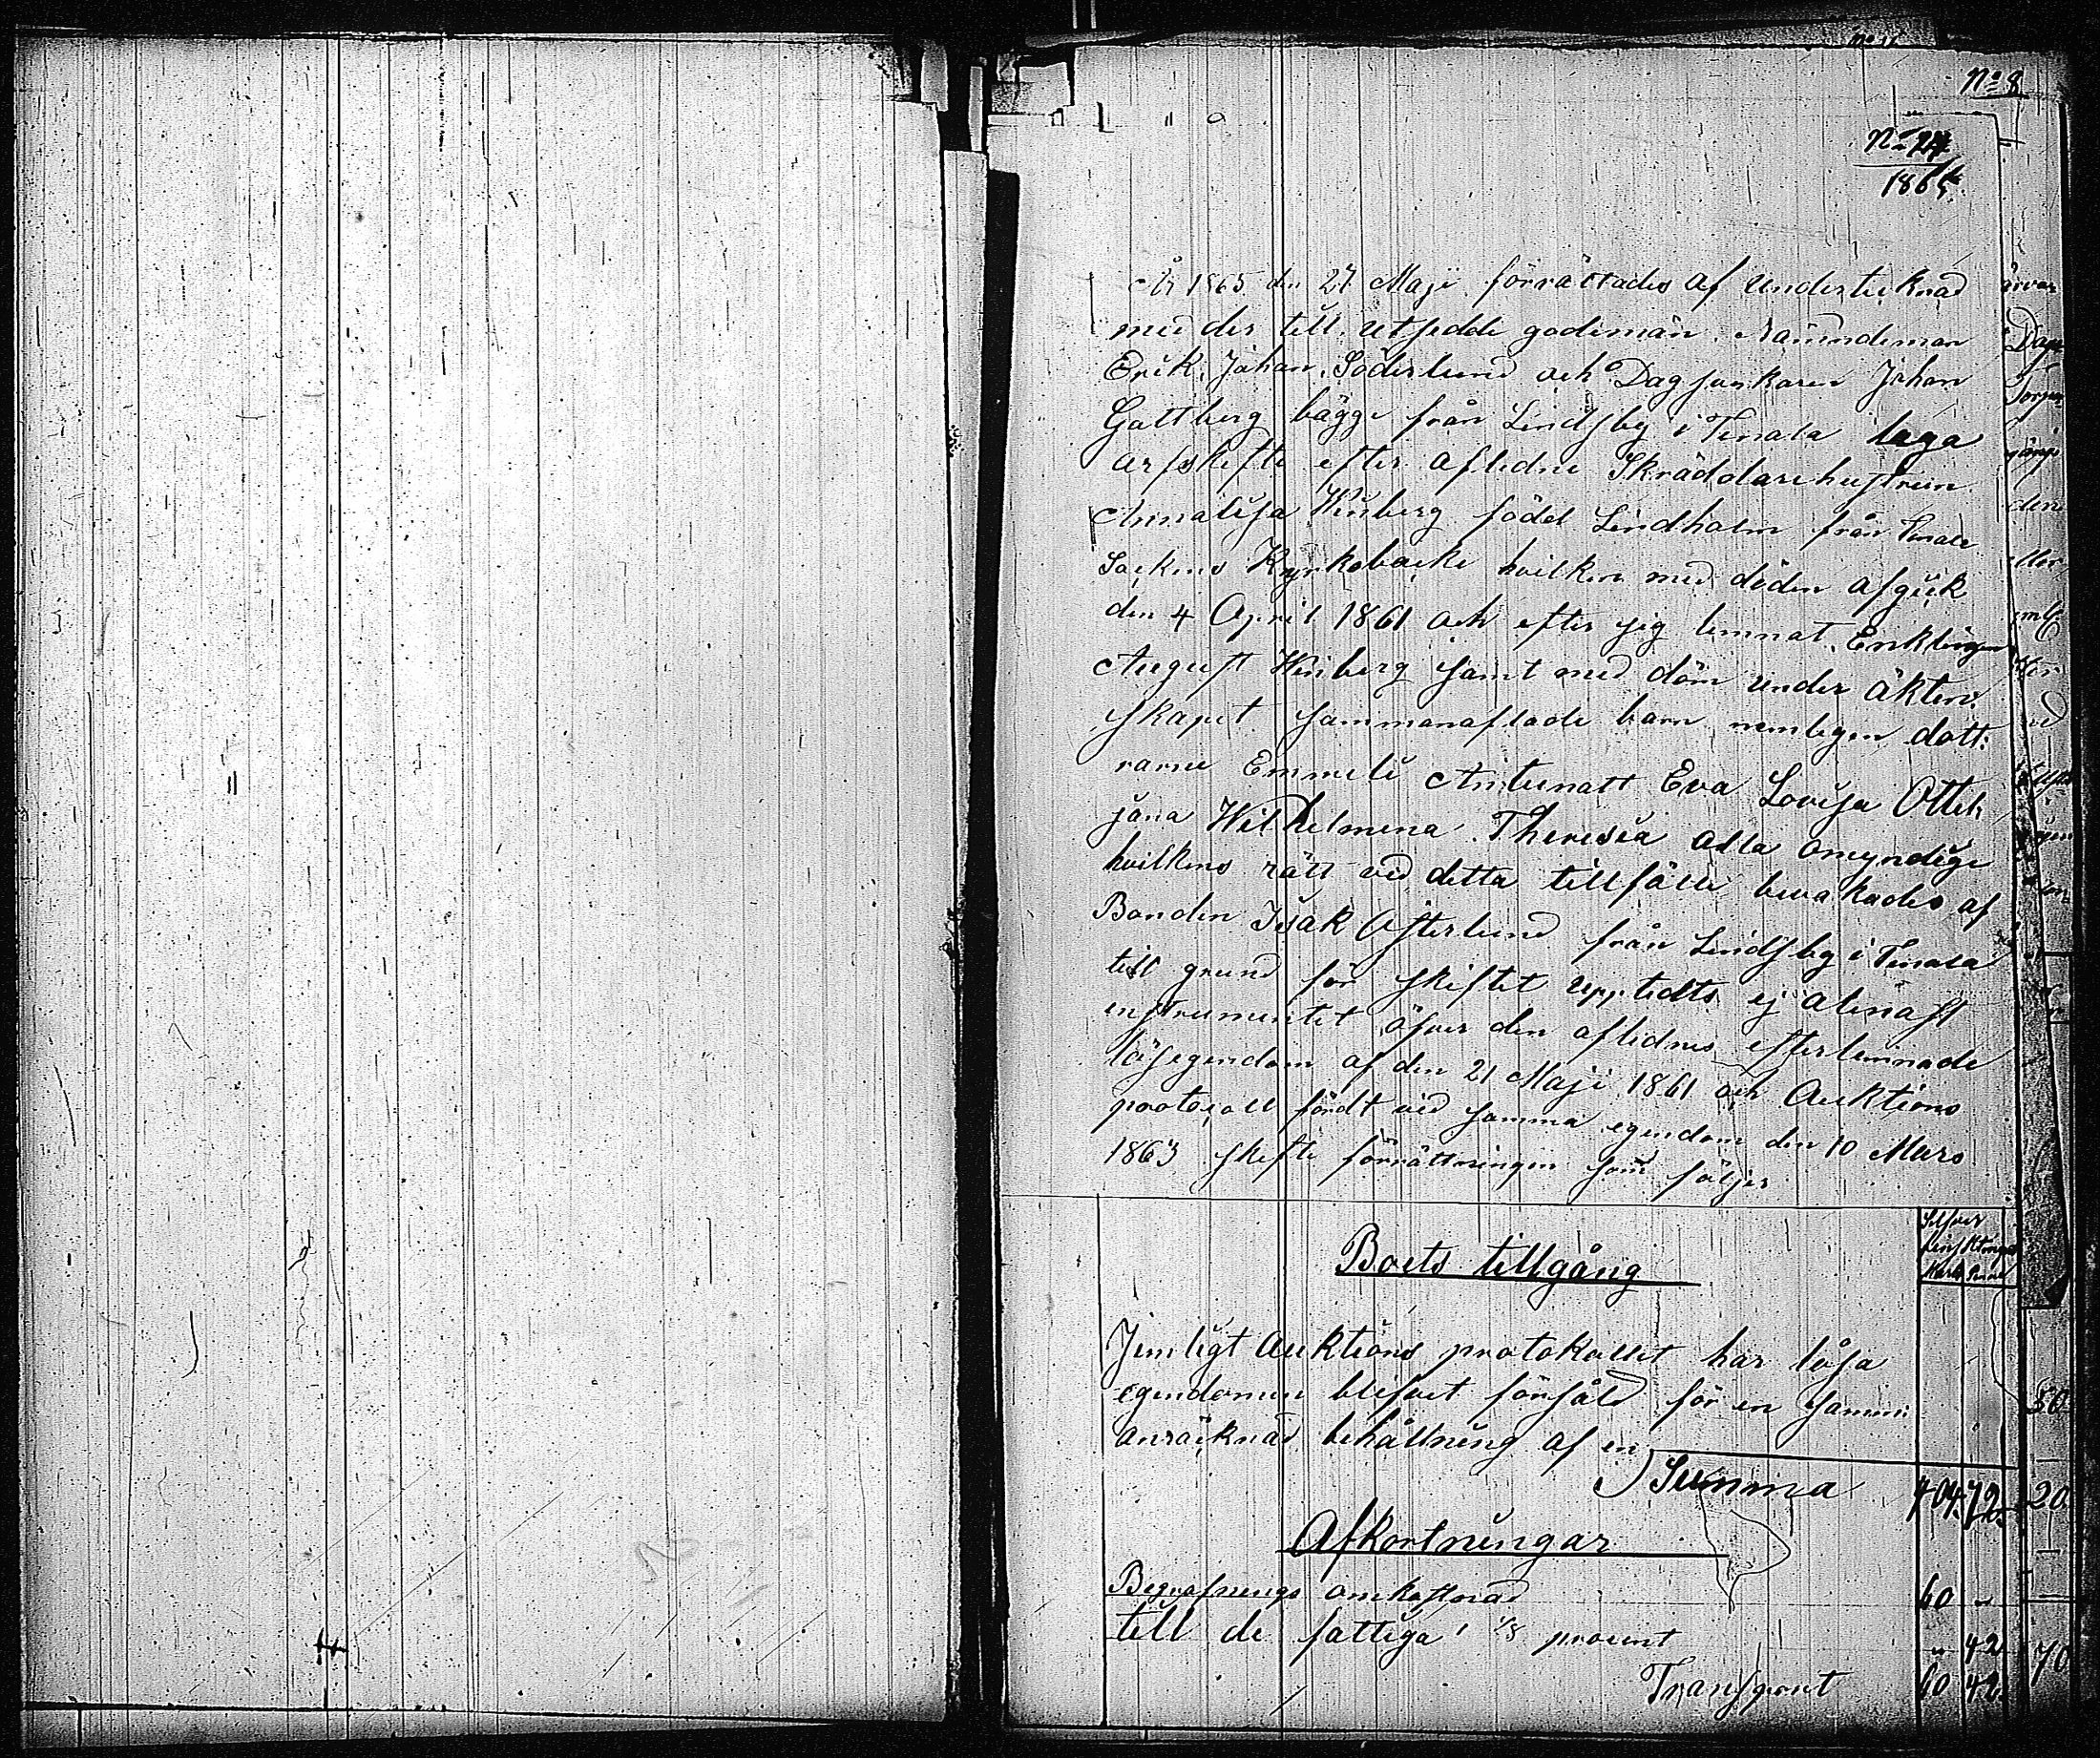 No 8
No 24
1865.
År 1865 den 27 Maji förrättades af undertecknad
med der till utsedde godemän Nämndeman
Erik Johan Söderlund och Dagsverkaren Johan
Gottberg bägge från Lindsby i Tenala laga
arfskifte efter aflidne Skräddarehustrun
Annalisa Winberg född Lindholm från Tenala
Sockens Kyrkobacke hvilken med döden afgick
den 4 April 1861 och efter sig lemnat Enklingen
August Winberg samt med döm under äkten-
skapet sammanaflade barn nemligen dött:
rarne Emmeli Antunatt Eva Lovisa Otteli
jäna Wilhelmina Theresia alla omyndige
hvilkens rätt vid detta tillfälle bevakades af
Bonden Isak Österlund från Lindsby i Tenala
till grund för skiftet upptedts ej allenast
instrumentet öfver den aflidnes efterlemnade
lösegendom af den 21 Maji 1861 och Auktions
protocoll fördt vid samma egendom den 10 Mars
1863 skifte förrättningen som följer
Silfver
Boets tillgång
Jemligt Auktions protokollet har lösa
egendomen blifvet försåld för en samm:
anräcknad behållning af en
Summa 404. 72.
Afkortningar
Begrafnings omkostnad 60 "
till de fattiga 1/8 procent " 42
Transport 60 42.